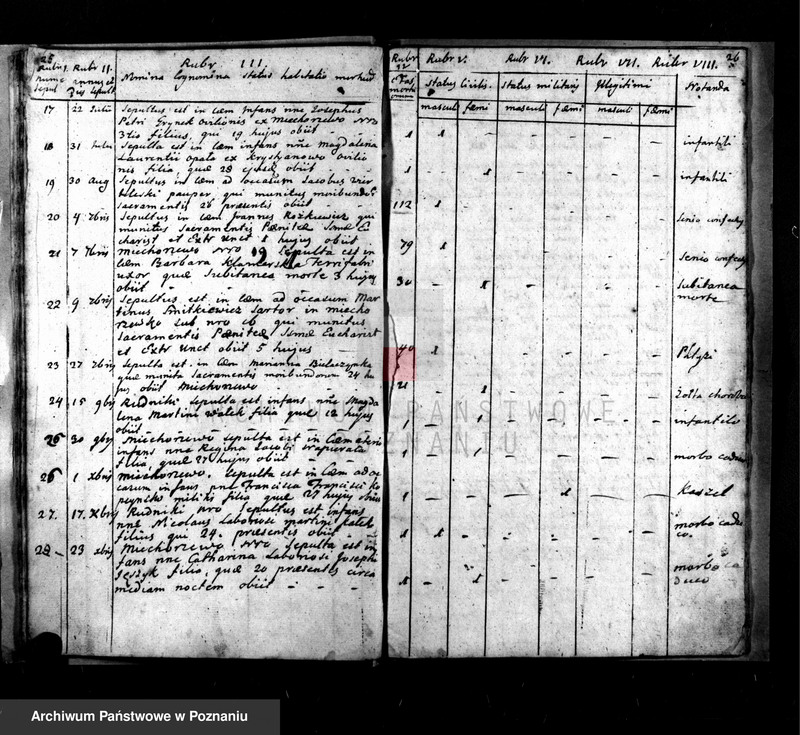 25
Rubr I. Rubr II. Rubr III.
Nomina Cognomina status habitatio mortui
17 22 Julii Sepultus est in Cœm infans nne Josephus
Petri Grynek ovilionis ex Miechorzewo Nro
3tio filius, qui 19 hujus obiit
18 31 Julii Sepulta est in Cœm infans nne Magdalena
Laurentii opala ex Krystyanowo ovilio
nis filia, quæ 28 ejusd obiit
19 30 Aug Sepultus in Cœm ad occasum Jacobus
pauper, qui munitus moribundor
sacramentis 28 præsentis obiit
20 4 7bris Sepultus in Cœm Joannes Rożkiewicz qui
munitus Sacramentis Pœnitæ Ssmæ Eu
charist et Extr Unct 1 hujus obiit
21 7 7bris Miechorzewo Nro 19 Sepulta est in
Cœm Barbara Klamerska ferrifabri
uxor quæ Subitanea morte 3 hujus
obiit
22 9 7bris Sepultus est in Cœm ad occasum Mar
tinus Smitkiewicz Sartor in miecho
rzewko sub nro 16 qui munitus
Sacramentis Pœnitæ Ssmæ Eucharist
et Extr Unct obiit 5 hujus
23 27 7bris Sepulta est in Cœm Marianna
quæ munita sacramentis moribundorum 24 hu
jus obiit Miechorzewo
24 15 9bris Rudniki sepulta est infans nne Magda
lena Martini Walek filia quæ 12 hujus
obiit
25 30 9bris Miechorzewo sepulta est in Cœmeterio
infans nne Regina Jacobi
filia, quæ 27 hujus obiit
26 1 xbris Miechorzewo. Sepulta est in Cœm ad oc
casum infans nne Francisca Francisci
militis filia quæ 27 hujus obiit
27. 17. xbris Rudniki nro Sepultus est infans
nne Nicolaus Laboriosi Martini Walek
filius qui 24. præsentis obiit
28 23 xbris Miechorzewo Nro Sepulta est in
fans nne Catharina Laboriosi Josephi
Jeżyk filia, quæ 20 præsentis circa
mediam noctem obiit
Rubr IV Rubr V. Rubr VI. Rubr VII. Rubr VIII. 26
status civilis. status militaris Illegitimi Notanda
masculi fœmi masculi fœmi masculi fœmi
1 1 infantili
1 1 infantili
112 1 senio confectus
79 1 senio confectus
30 1 Subitanea
morte
40 1 Phtysi
21 1 żółta choroba
1 1 infantile
1 1 morbo caduco
1 1 Kaszel
1 1 morbo cadu
co.
1 1 morbo ca
duco
PAŃSTWOWE
Archiwum Państwowe w Poznaniu